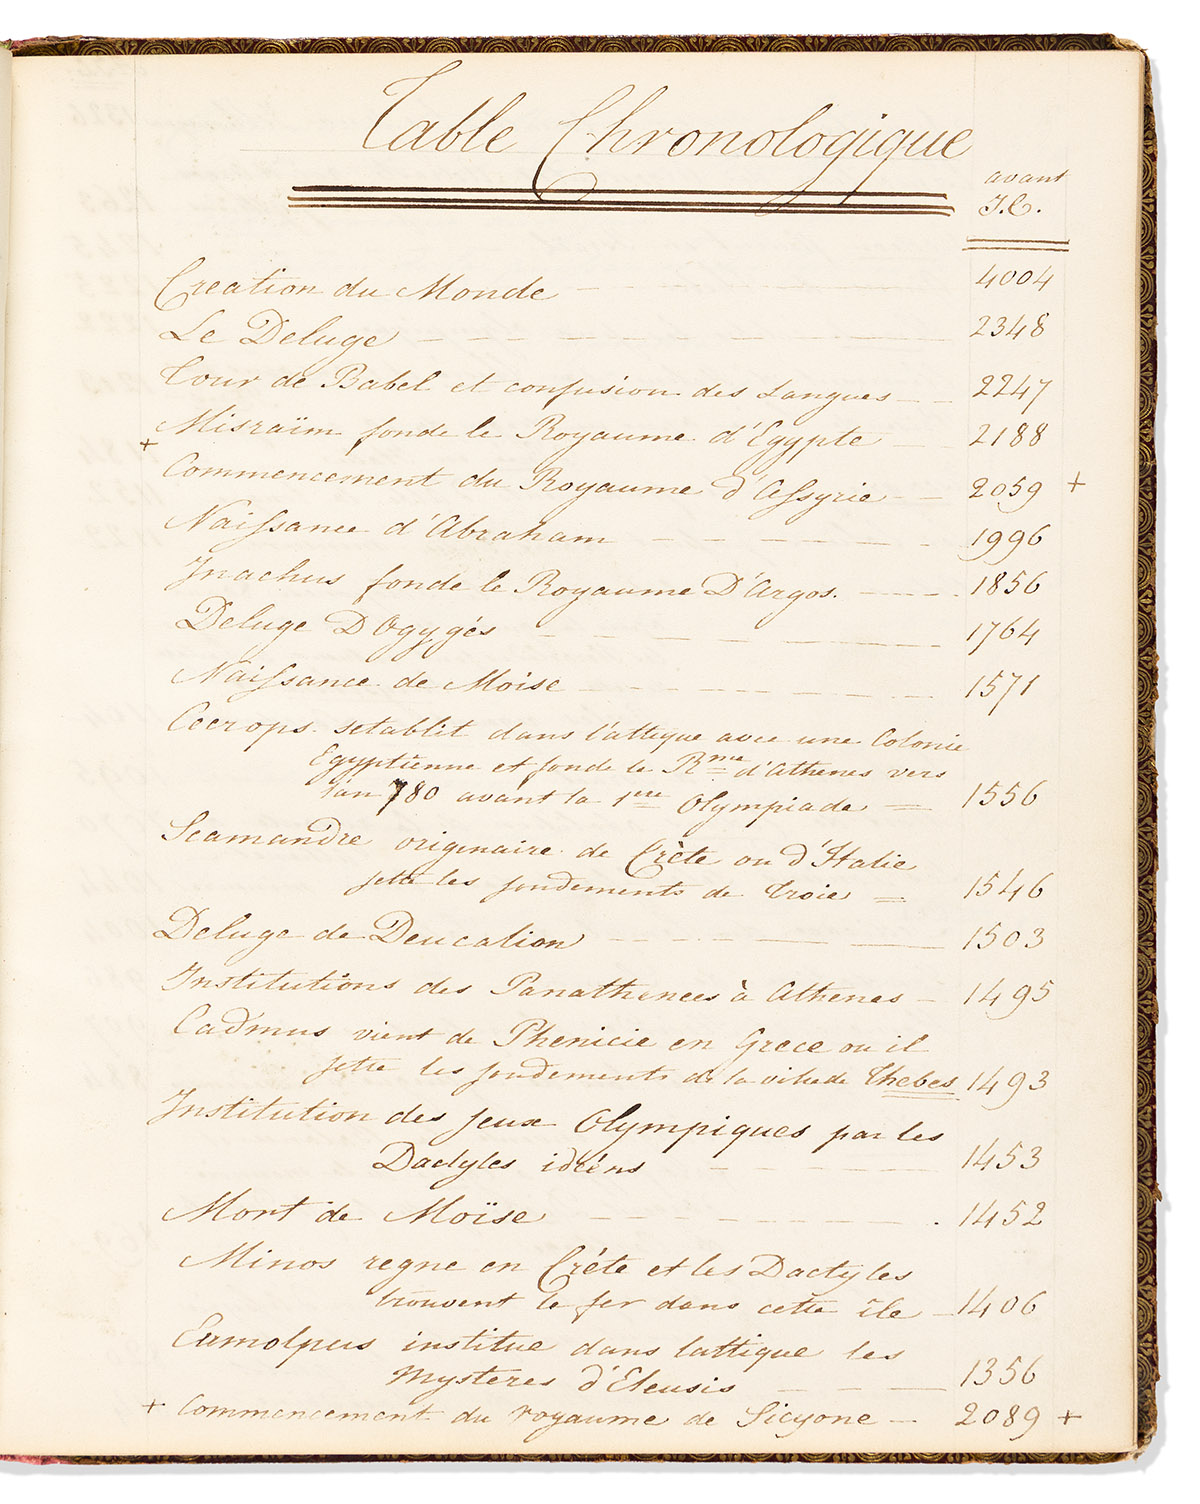 Table Chronologique
avant
J.C.
Creation du Monde 4004
Le Deluge 2348
Tour de Babel et confusion des Langues 2247
Misraïm fonde le Royaume d'Egypte 2188
+
Commencement du Royaume d'Assyrie 2059 +
Naissance d'Abraham 1996
Inachus fonde le Royaume D'Argos. 1856
Deluge D'Ogygés 1764
Naissance de Moïse 1571
Cecrops setablit dans l'attique avec une Colonie
Egyptiènne et fonde le Rme d'Athenes vers
l'an 780 avant la 1ere Olympiade 1556
Scamandre originaire de Crète ou d'Italie
jette les fondements de Troie 1546
Deluge de Deucalion 1503
Institutions des Panathences à Athenes 1495
Cadmus vient de Phenicie en Grece ou il
jette les fondements de la ville de Thebes 1493
Institution des jeux Olympiques par les
Dactyles idéens 1453
Mort de Moïse 1452
Minos regne en Crète et les Dactyles
trouvent le fer dans cette île 1406
Eumolpus institue dans lattique les
Mysteres d'Eleusis 1356
+ Commencement du royaume de Sicyone 2089 +